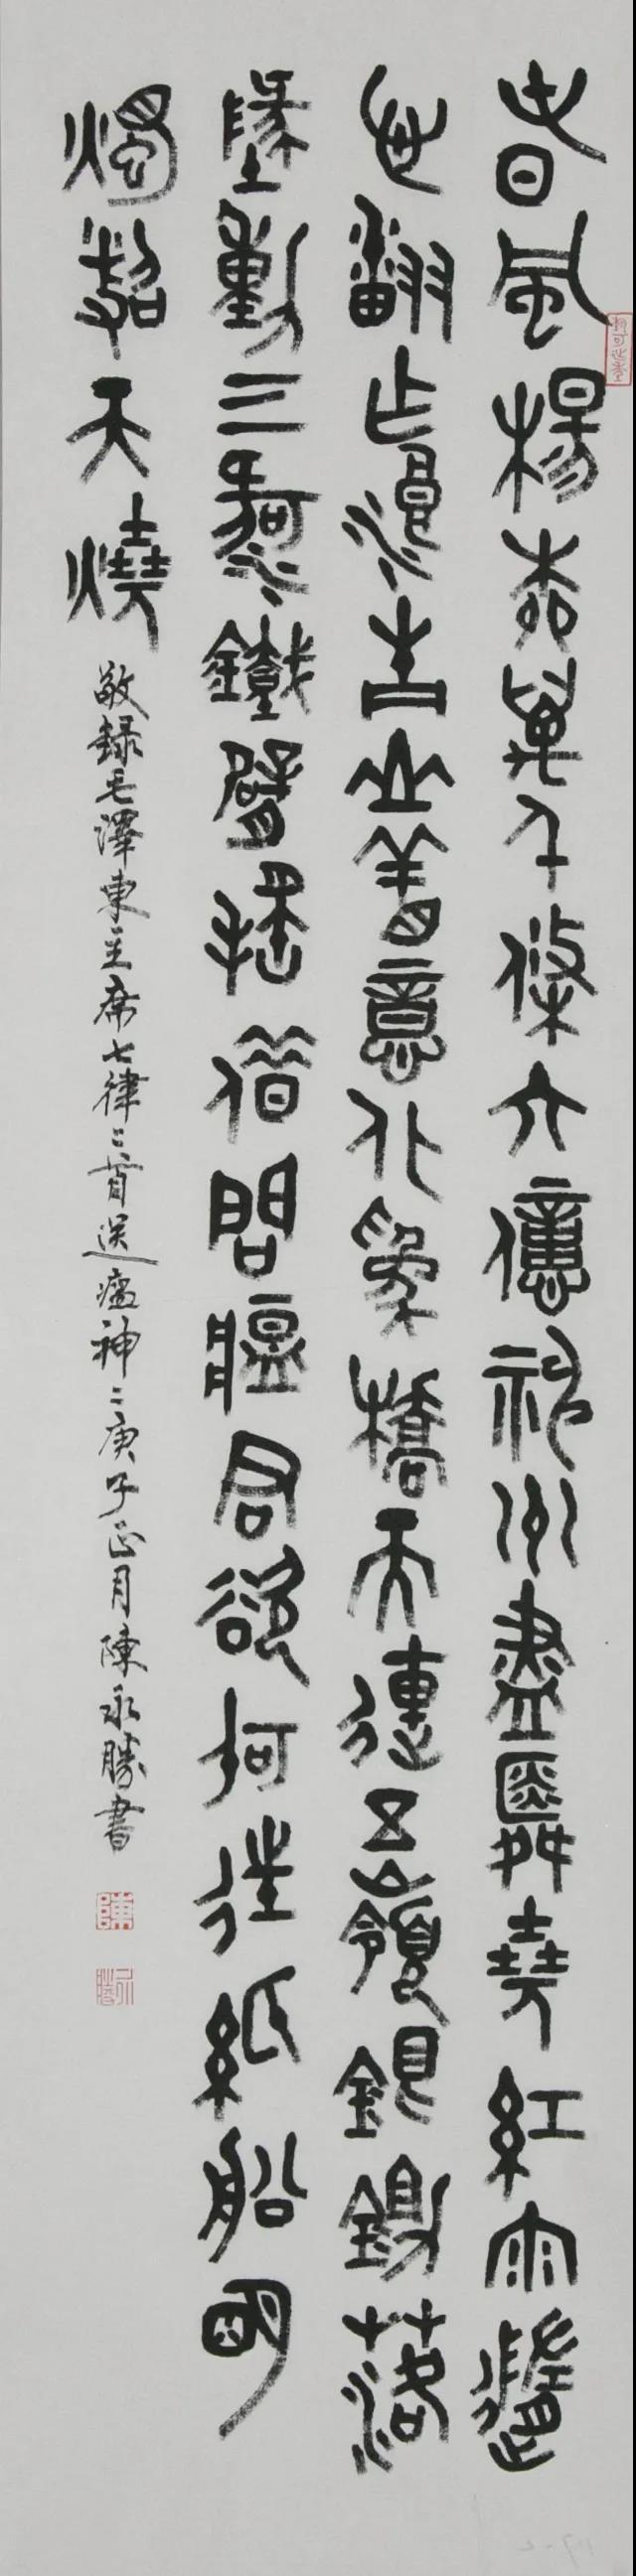 春風楊柳萬千條六億神州盡舜堯紅雨隨
心翻作浪青山着意化為橋天連五嶺銀鋤落
地動三河鐵臂搖借問瘟君欲何往紙船明
燭照天燒
敬錄毛澤東主席七律二首送瘟神二庚子正月陳永勝書
陳
永勝